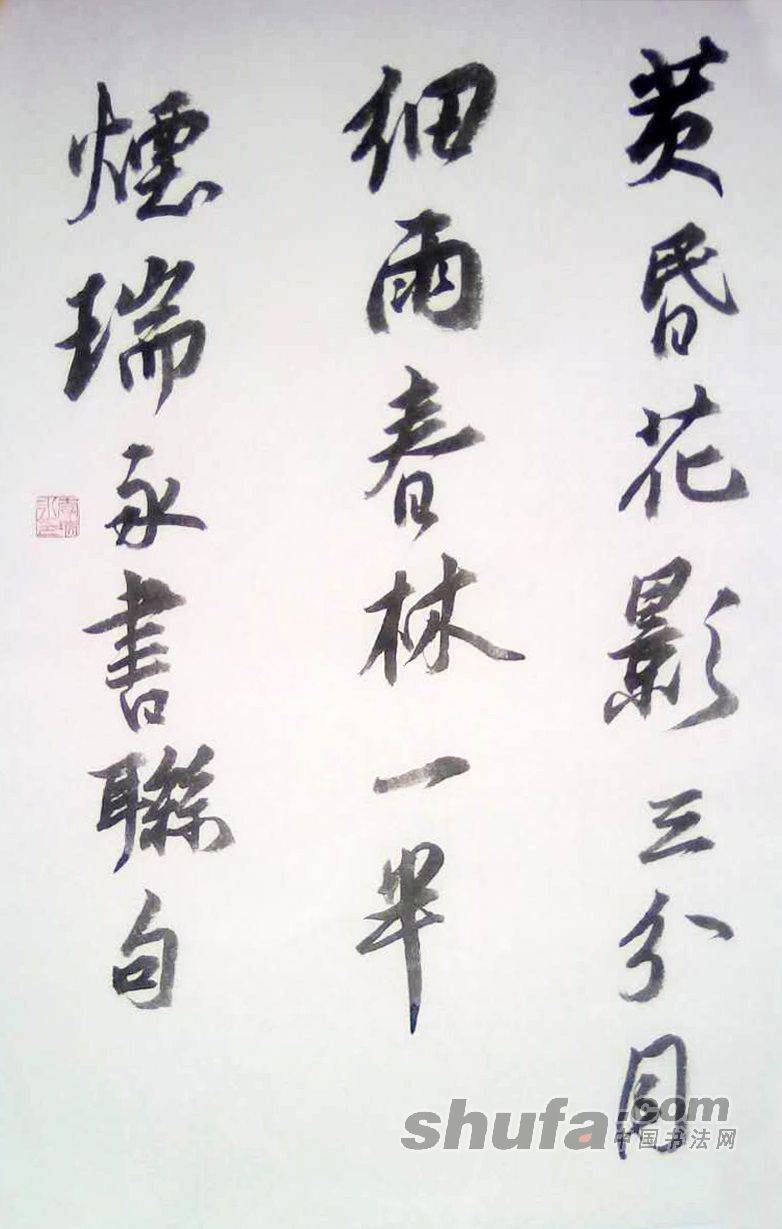 黄昏花影三分月
细雨春林一半
煙瑞永書聯句
shufa.com
中国书法网